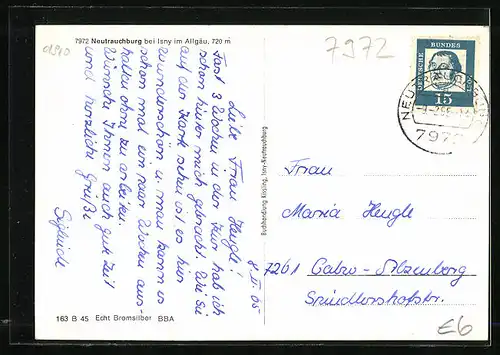 0290
7972 Neutrauchburg bei Isny im Allgäu, 720 m
8. II. 65
Liebe Frau Heugle!
Fast 3 Wochen in der Kur hab ich
schon hinter mich gebracht. Wie Sie
auf der Karte sehen ist es hier
wunderschön u. man kann es
schon mal ein paar Wochen aus-
halten ohne zu arbeiten.
Wünsche Ihnen auch gute Zeit
und herzliche Grüße
163 B 45 Echt Bromsilber BBA
Buchhandlung Kissling, Isny-Neutrauchburg
7972
DEUTSCHE BUNDESPOST
15
NEUTRAUCHBURG
7972
Frau
Maria Heugle
7261 Calw-Alzenberg
Speßhardterstr.
E6